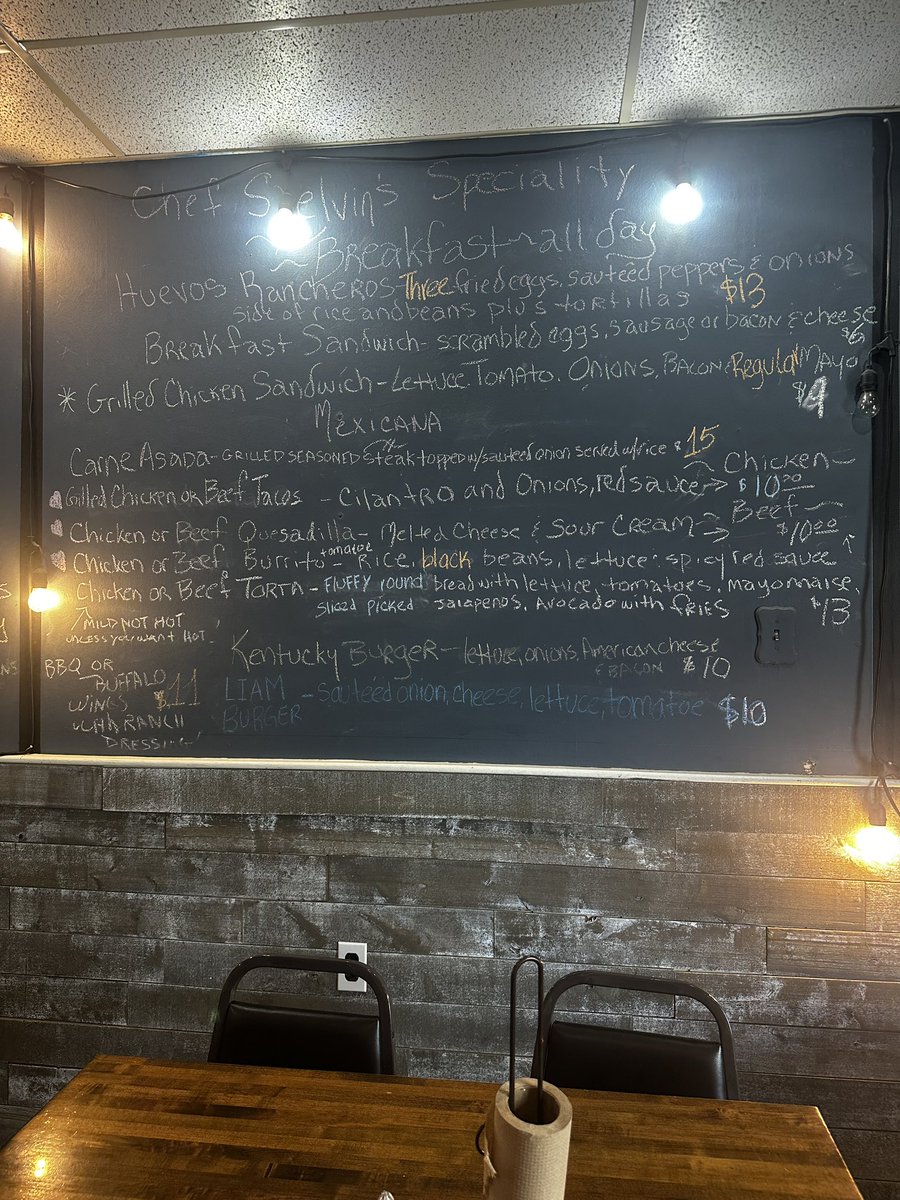 Chef Selvin's Speciality
~ Breakfast ~ all day
Huevos Rancheros Three fried eggs, sauteed peppers & onions
side of rice and beans plus tortillas $13
Breakfast Sandwich - scrambled eggs, sausage or bacon & cheese
$6
* Grilled Chicken Sandwich - Lettuce. Tomato. Onions, Bacon & Regular Mayo
$9
Mexicana
Carne Asada - Grilled seasoned steak topped w/ sauteed onion served w/rice $15
Grilled Chicken or Beef Tacos - Cilantro and Onions, red sauce → Chicken - $10.00
Chicken or Beef Quesadilla - Melted Cheese & Sour Cream → Beef - $10.00
Chicken or Beef Burrito - Rice, tomatoe black beans, lettuce: spicy red sauce ↑
Chicken or Beef Torta - Fluffy round bread with lettuce, tomatoes, mayonnaise,
sliced picked jalapenos, Avocado with FRIES $13
MILD NOT HOT
unless you want HOT.
Kentucky Burger - lettuce, onions, American cheese
& BACON $10
BBQ OR
BUFFALO
WINGS $11
RANCH
DRESSING
LIAM BURGER - sautéed onion, cheese, lettuce, tomatoe $10